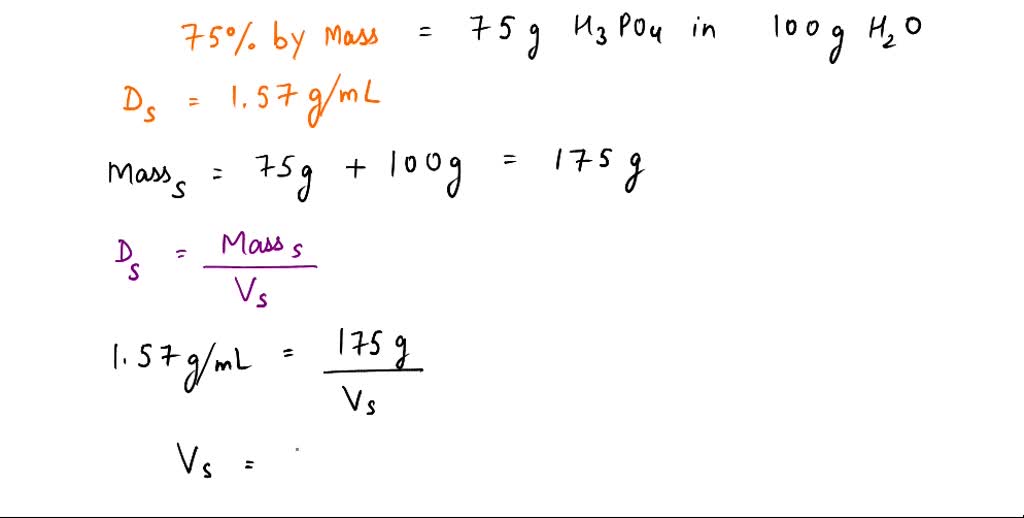 75% by Mass = 75 g H3PO4 in 100 g H2O
Ds = 1.57 g/mL
Masss = 75g + 100g = 175 g
Ds = Masss / Vs
1.57 g/mL = 175 g / Vs
Vs =